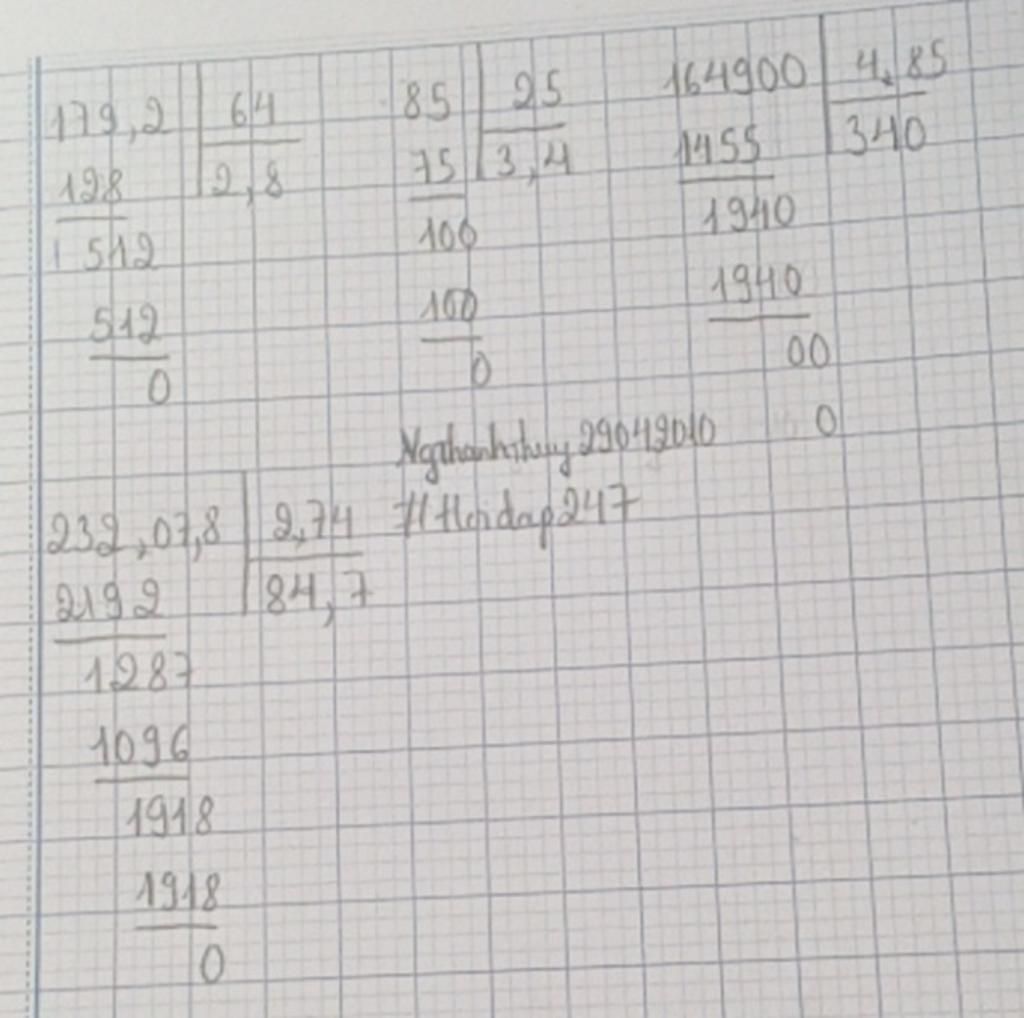 179,2 64
128 2,8
512
512
0
85 25
75 3,4
100
100
0
164900 4,85
1455 340
1940
1940
00
0
Ngthanhthuy29042010
#Hoidap247
232,07,8 2,74
2192 84,7
1287
1096
1918
1918
0